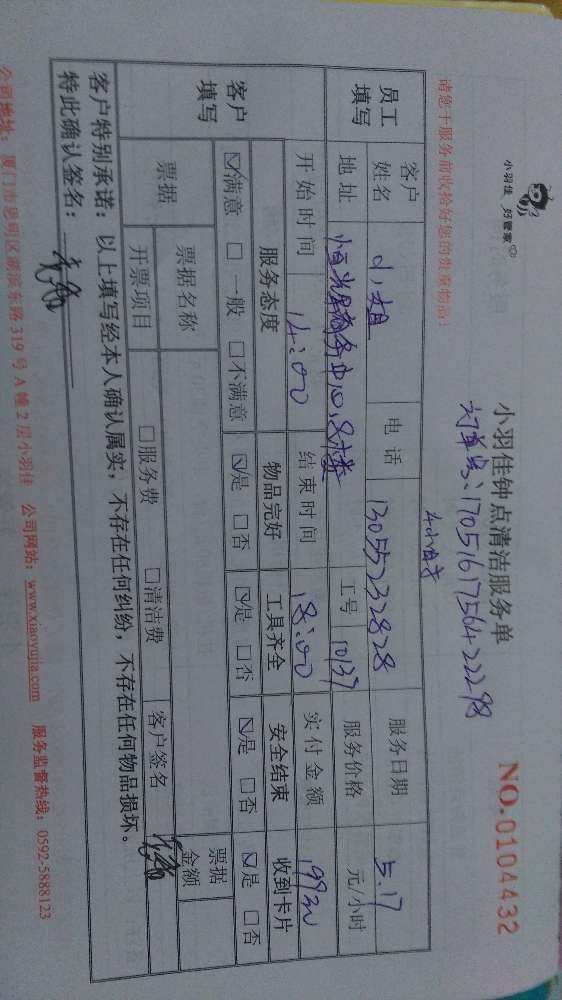 小羽佳 好管家
小羽佳钟点清洁服务单
NO.0104432
订单号:17051617564222298
请您于服务前收拾好您的贵重物品!
4小时
员工填写 客户姓名 小姐 电话 13055232828 服务日期 5.17
地址 恒光星商务中心,8楼 工号 10137 服务价格 元/小时
客户填写 开始时间 14:00 结束时间 18:00 实付金额 199元
服务态度 物品完好 工具齐全 安全结束 收到卡片
☑满意 □一般 □不满意 ☑是 □否 ☑是 □否 ☑是 □否 ☑是 □否
票据 票据名称 票据金额
开票项目 □服务费 □清洁费 客户签名
客户特别承诺:以上填写经本人确认属实,不存在任何纠纷,不存在任何物品损坏。
特此确认签名:
公司地址:厦门市思明区湖滨东路319号A幢2层小羽佳 公司网站:www.xiaoyujia.com 服务监督热线:0592-5888123